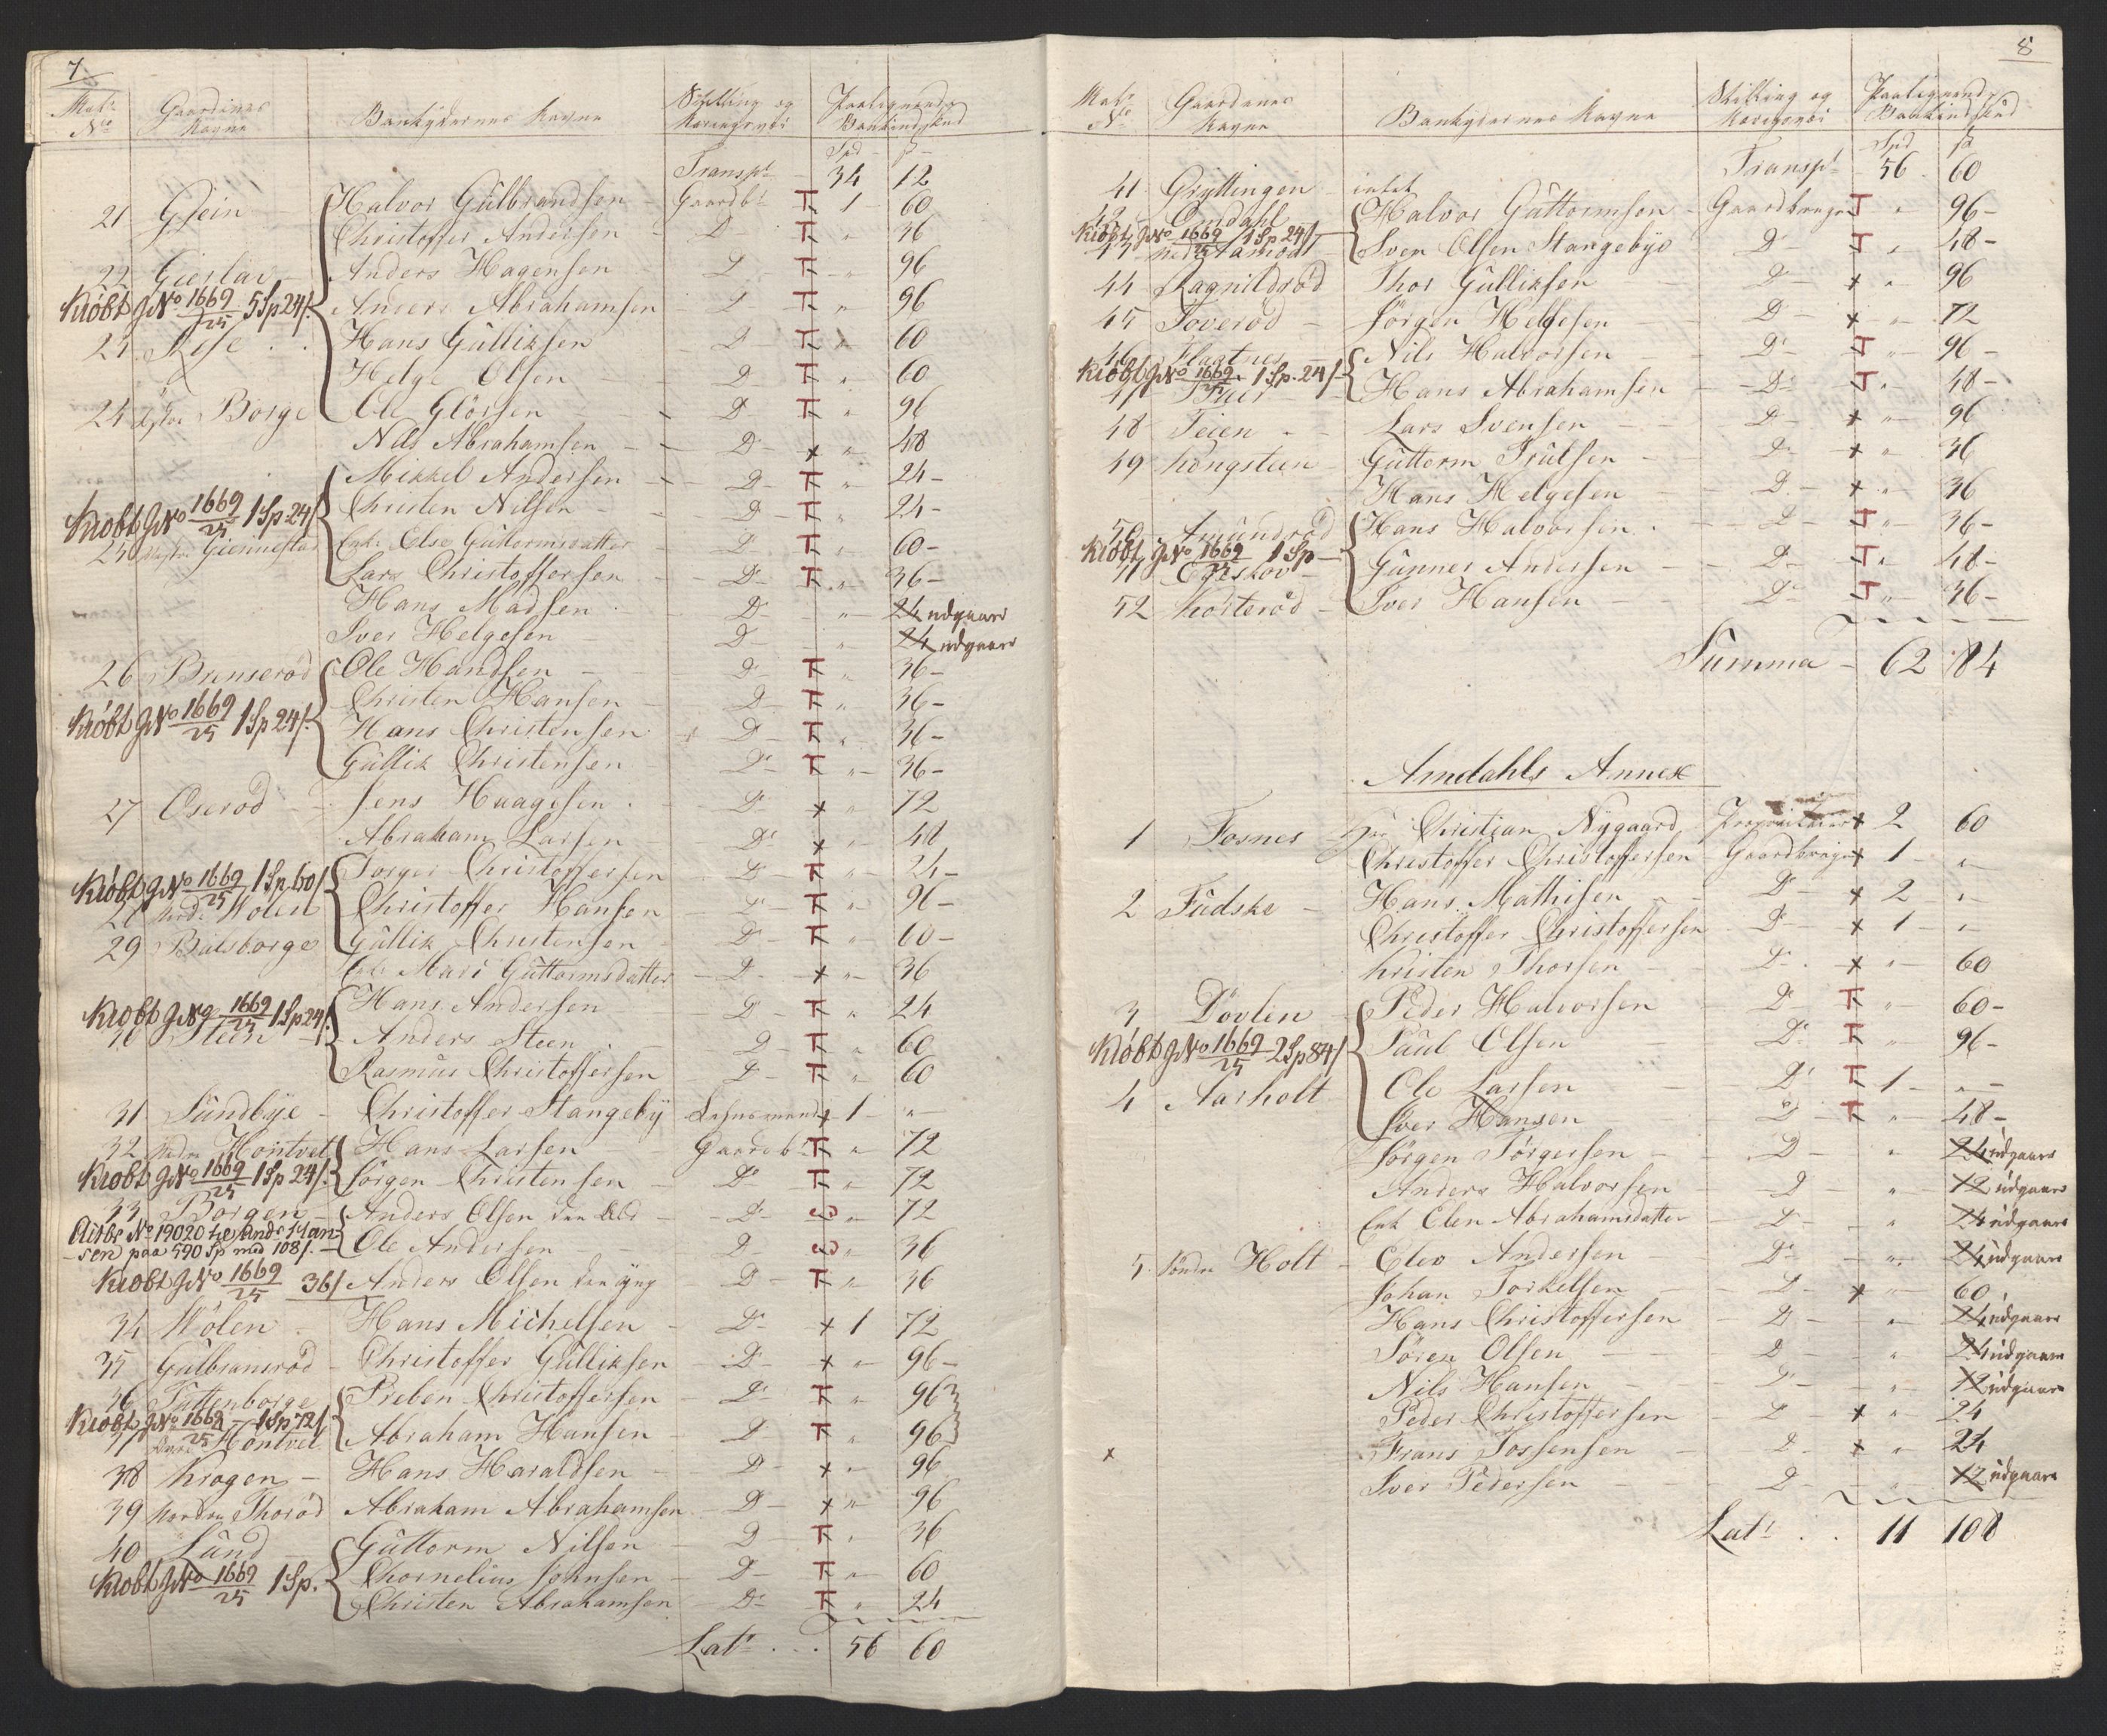 7
Matr No | Gaardenes Navne | Bankydernes Navne | Stilling og Næringsvei | Paalignende Bankindskud
Spd ß
Transpt 34 12
21 Gjein Halvor Gulbrandsen Gaardbr T 1 60
Christoffer Andersen D T " 36
22 Gierlav Anders Hagensen D T " 96
Kiöbt J No 1669/25 5 Sp 24 ß Anders Abrahamsen D T " 96
23 Rose Hans Gulliksen D T " 60
Helge Olsen D T " 60
24 Østre Borge Ole Glörsen D T " 96
Nils Abrahamsen D x " 48
Mikkel Andersen D T " 24
Kiöbt J No 1669/25 1 Sp 24 ß Christen Nilsen D T " 24
25 Vestre Giennestad Enke Else Guttormsdatter D T " 60
Lars Christoffersen D T " 36
Hans Madsen D " 24 udgaaer
Iver Helgesen D " 24 udgaaer
26 Brunserød Ole Handsen D T " 36
Christen Hansen D T " 36
Kiöbt J No 1669/25 1 Sp 24 ß Hans Christensen D T " 36
Gullik Christensen D T " 36
27 Oserød Jens Haagesen D x " 72
Abraham Larsen D x " 48
Kiöbt J No 1669/25 1 Sp 60 ß Torger Christoffersen D T " 24
28 Nedr Wolen Christoffer Hansen D T " 96
29 Bulsborge Gullik Christensen D T " 60
Enke Mari Guttormsdatter D x " 36
Kiöbt J No 1669/25 1 Sp 24 ß Hans Andersen D T " 24
30 Steen Anders Steen D T " 60
Rasmus Christoffersen D T " 60
31 Sundbye Christoffer Stangeby Lehnsmand x 1 "
32 Nedre Hontvet Hans Larsen Gaardb T " 72
Kiöbt J No 1669/25 1 Sp 24 ß Jörgen Christensen D T " 72
33 Borgen Anders Olsen den Eld D " 72
No 19020 til Ands Han-
sen paa 590 Sp med 108 ß. Ole Andersen D " 36
Kiöbt J No 1669/25 36 ß Anders Olsen den yng D T " 36
34 Wölen Hans Michelsen D x 1 72
35 Gulbransrød Christoffer Gulliksen D x " 96
36 Tuttenborge Preben Christoffersen D T " 96
Kiöbt J No 1669/25 1 Sp 72 ß
37 Hontvet Abraham Hansen D T " 96
38 Krogen Hans Haraldsen D x " 96
39 Nordre Thoröd Abraham Abrahamsen D x " 96
40 Lund Guttorm Nilsen D T " 36
Kiöbt J No 1669/25 1 Sp. Chornelius Johnsen D T " 60
Christen Abrahamsen D T " 24
Latr 56 60
8
Matr No | Gaardenes Navne | Bankydernes Navne | Stilling og Næringsvei | Paalignende Bankindskud
Spd ß
Transpt 56 60
41 Gryttingen intet
42 Omdahl Halvor Guttormsen Gaardbruger T " 96
Kiöbt J No 1669/25 1 Sp 24 ß
43 Sven Olsen Stangebye D T " 48
44 Ragnildröd Thor Gulliksen D x " 96
45 Toveröd Jörgen Helgesen D x " 72
46 Flaatnes Nils Halvorsen D T " 96
Kiöbt J No 1669/25 1 Sp. 24 ß
47 Hans Abrahamsen D T " 48
48 Teien Lars Svensen D x " 96
49 Kongsteen Guttorm Trulsen D x " 36
Hans Helgesen D x " 36
50 Amundröd Hans Halvorsen D T " 36
Kiöbt J No 1669/25 1 Sp
51 Egeskov Gunner Andersen D T " 48
52 Korteröd Iver Hansen D T " 36
Summa 62 84
Arndahls Annex
1 Fosnes Hr Christian Nygaard Proprietair x 2 60
Christoffer Christoffersen Gaardbruger x 1 "
2 Fudske Hans Mathisen D x 2 "
Christoffer Christoffersen D x 1 "
Kristen Thorsen D x " 60
3 Dövlen Peder Halvorsen D T " 60
Kiöbt J No 1669/25 2 Sp 84 ß Paul Olsen D T " 96
4 Aarholt Ole Larsen D T 1 "
Iver Hansen D T " 48
Jörgen Törgersen D " 24 udgaaer
Anders Halvorsen D " 12 udgaaer
Enk Elen Abrahamsdatter D " 24 udgaaer
5 Söndre Holt Elev Andersen D " 24 udgaaer
Johan Torkelsen D x " 60
Hans Christoffersen D " 24 udgaaer
Sören Olsen D " 24 udgaaer
Nils Hansen D " 12 udgaaer
Peder Christoffersen D x " 24
x Frans Jossensen D x " 24
Iver Pedersen D " 12 udgaaer
Latr 11 108